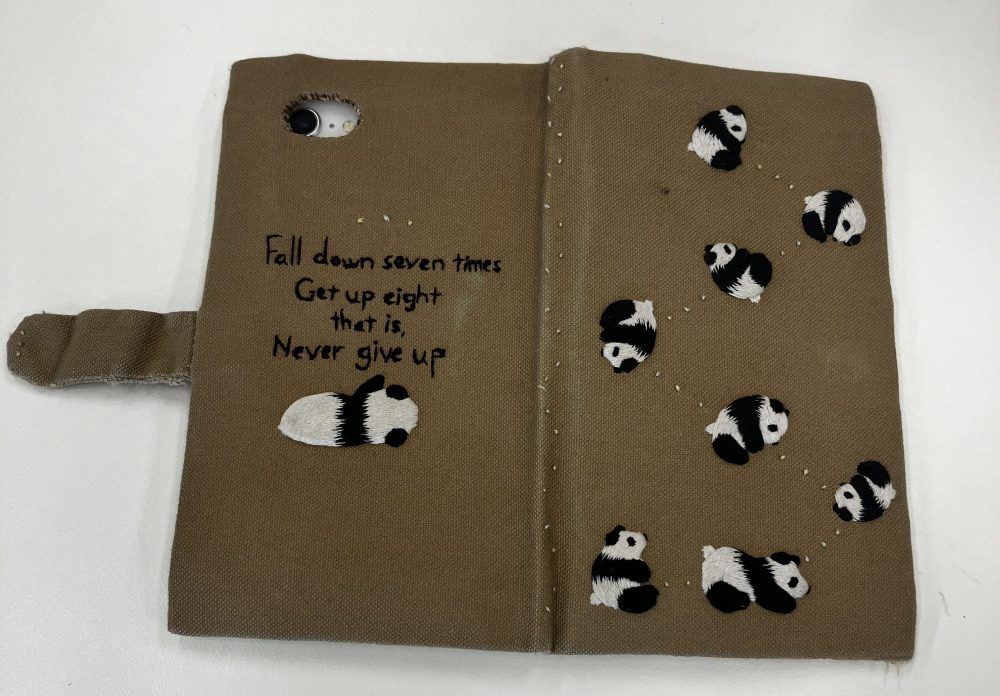 Fall down seven times
Get up eight
that is,
Never give up